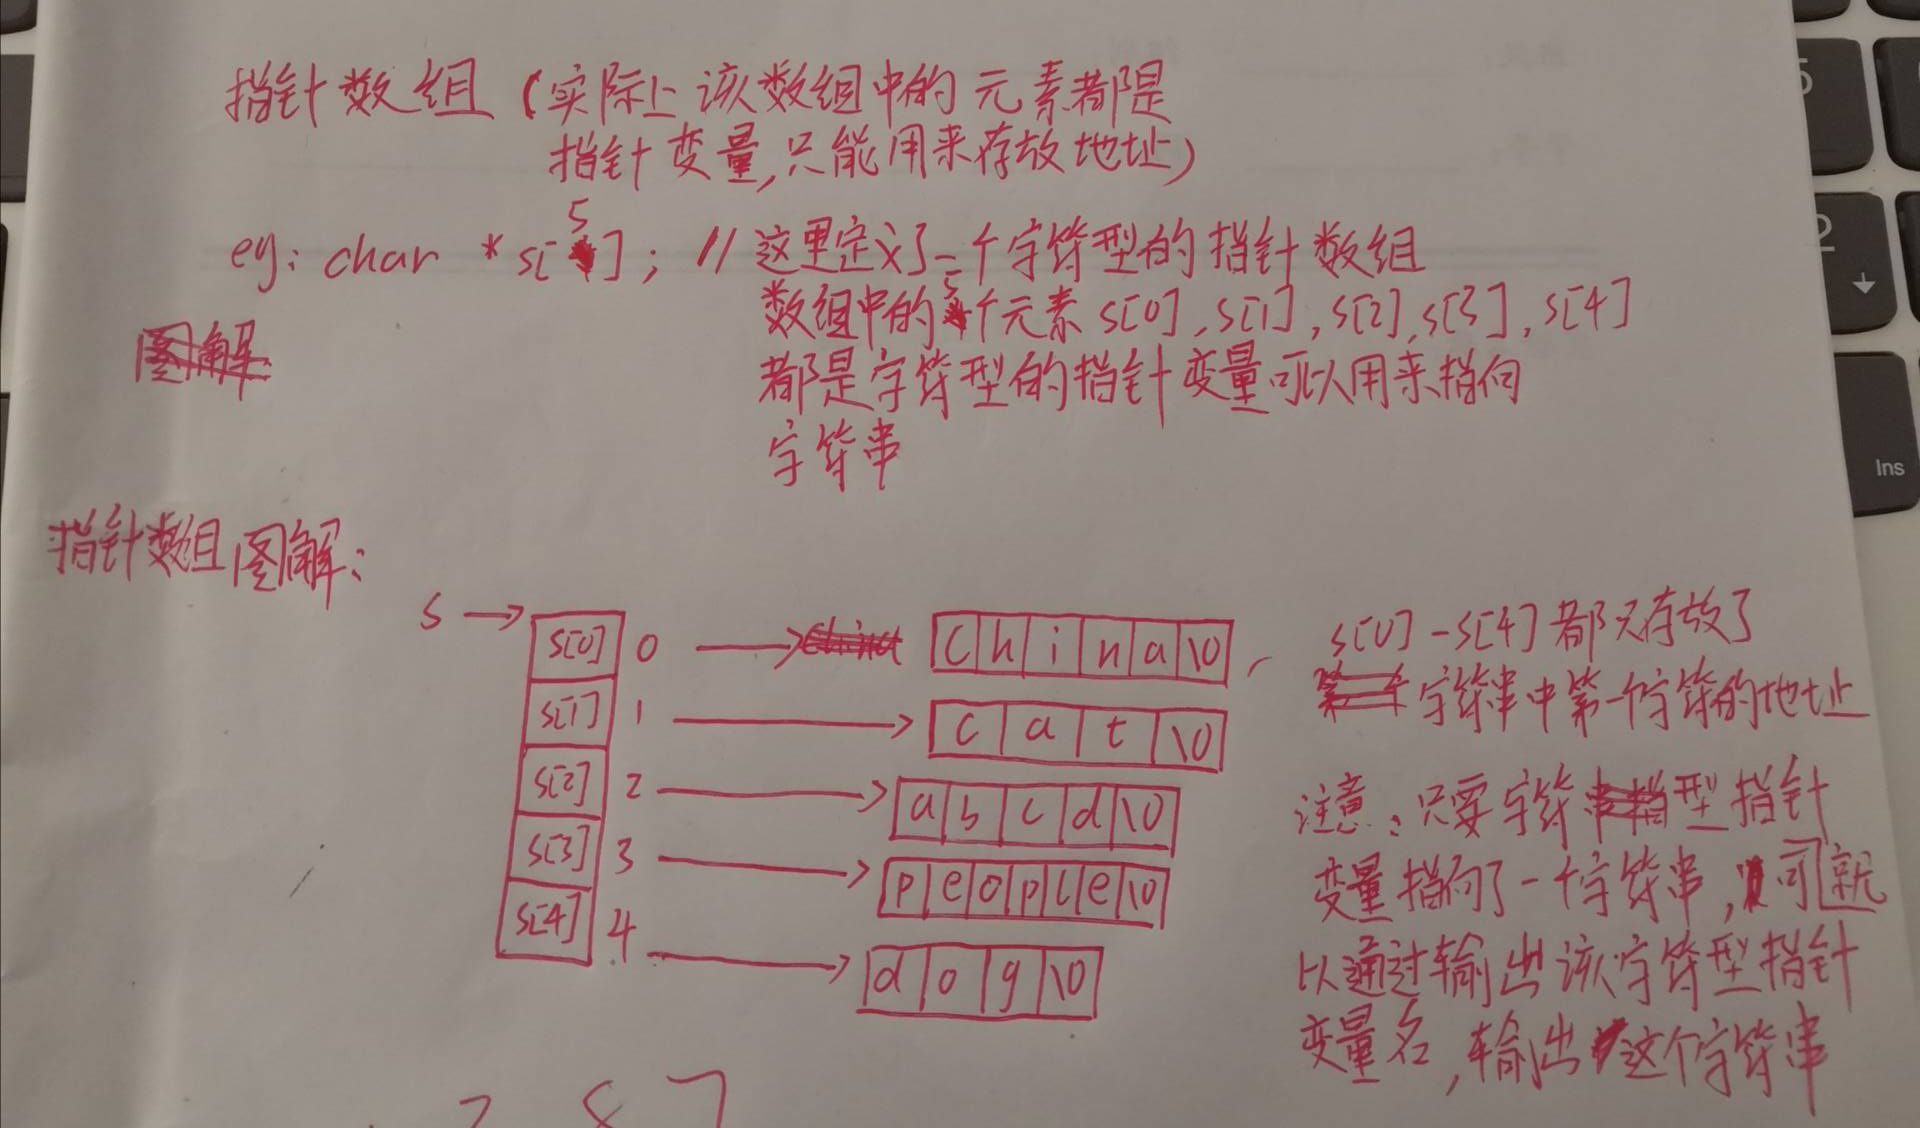 指针数组（实际上该数组中的元素都是
指针变量,只能用来存放地址）
eg: char *s[5]; //这里定义了一个字符型的指针数组
数组中的5个元素 s[0],s[1],s[2],s[3],s[4]
都是字符型的指针变量可以用来指向
字符串
图解
指针数组图解:
s
s[0] 0 China\0
s[1] 1 cat\0
s[2] 2 abcd\0
s[3] 3 people\0
s[4] 4 dog\0
s[0]-s[4]都只存放了
字符串中第一个字符的地址
注意:只要字符型指针
变量指向了一个字符串,就可
以通过输出该字符型指针
变量名,输出这个字符串
5
2
Ins